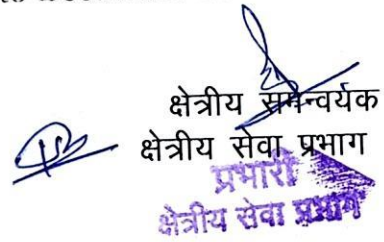 क्षेत्रीय समन्वयक
क्षेत्रीय सेवा प्रभाग
प्रभारी
क्षेत्रीय सेवा प्रभाग